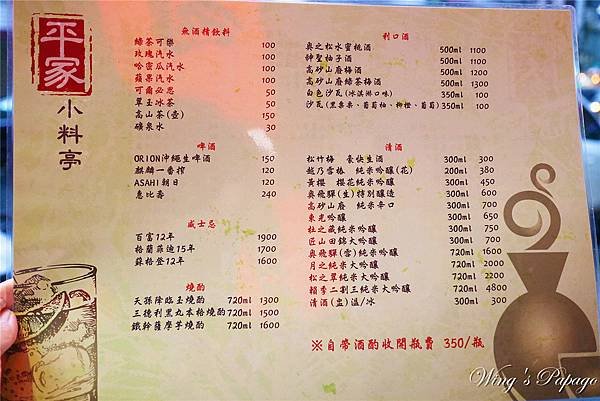 平家
小料亭
無酒精飲料
綠茶可樂 100
玫瑰汽水 100
哈密瓜汽水 100
蘋果汽水 100
可爾必思 50
翠玉冰茶 50
高山茶(壺) 150
礦泉水 30
啤酒
ORION沖繩生啤酒 150
麒麟一番搾 120
ASAHI朝日 120
惠比壽 240
威士忌
百富12年 1900
格蘭菲迪15年 1700
蘇格登12年 1600
燒酌
天孫降臨玉燒酌 720ml 1300
三德利黑丸本格燒酌 720ml 1500
鐵幹薩摩芋燒酌 720ml 1600
利口酒
奧之松水蜜桃酒 500ml 1100
神聖柚子酒 500ml 1100
高砂山廢梅酒 500ml 1200
高砂山廢綠茶梅酒 500ml 1300
白色沙瓦(冰淇淋口味) 350ml 100
沙瓦(黑棗栗、葡萄柚、柳橙、葡萄) 350ml 100
清酒
松竹梅 豪快生酒 300ml 300
越乃雪椿 純米吟釀(花) 200ml 380
黃櫻 櫻花純米吟釀 300ml 450
奧飛驒(生)特別釀造 300ml 600
高砂山廢 純米辛口 300ml 700
東光吟釀 300ml 650
杜之藏純米吟釀 300ml 750
匠山田錦大吟釀 300ml 700
奧飛驒(雪)純米吟釀 720ml 1600
月之純米大吟釀 720ml 2000
松之翠純米大吟釀 720ml 2200
賴季二割三純米大吟釀 720ml 4800
清酒(盅)溫/冰 300ml 300
※自帶酒酌收開瓶費 350/瓶
Wing's Papago